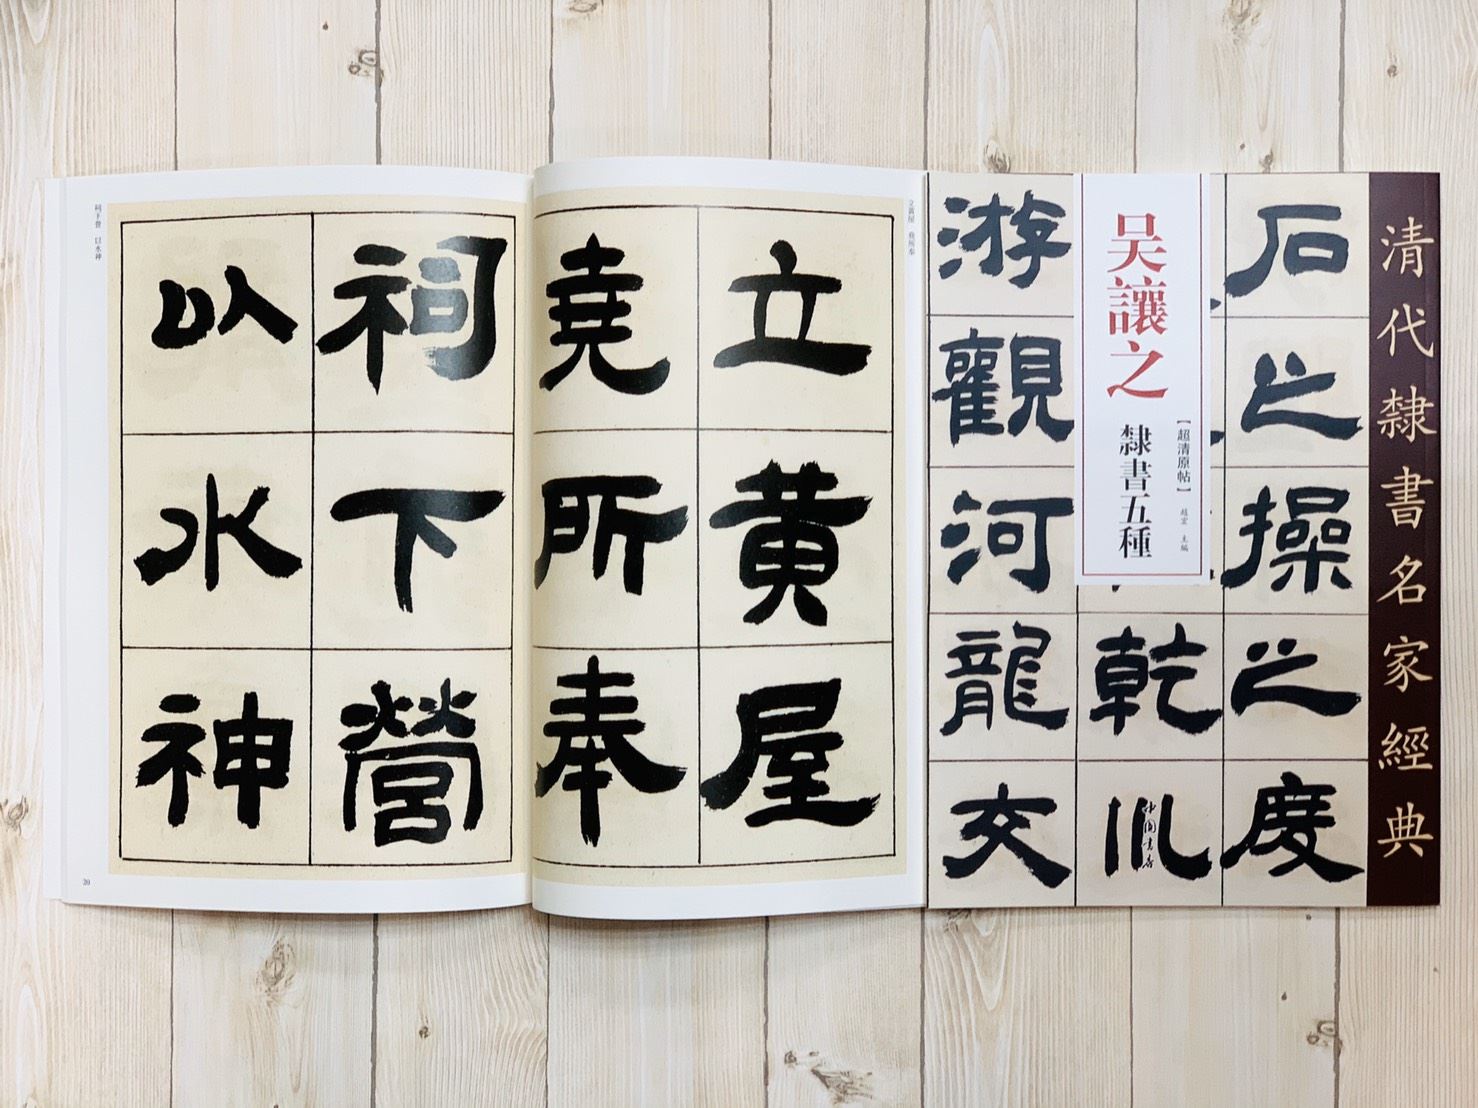 立黄屋
堯所奉
祠下營
以水神
立黃屋 堯所奉
祠下營 以水神
20
清代隸書名家經典
吴讓之
【超清原帖】
隸書五種
趙宏 主編
石之操之度
乾
游觀河龍交
中國書店